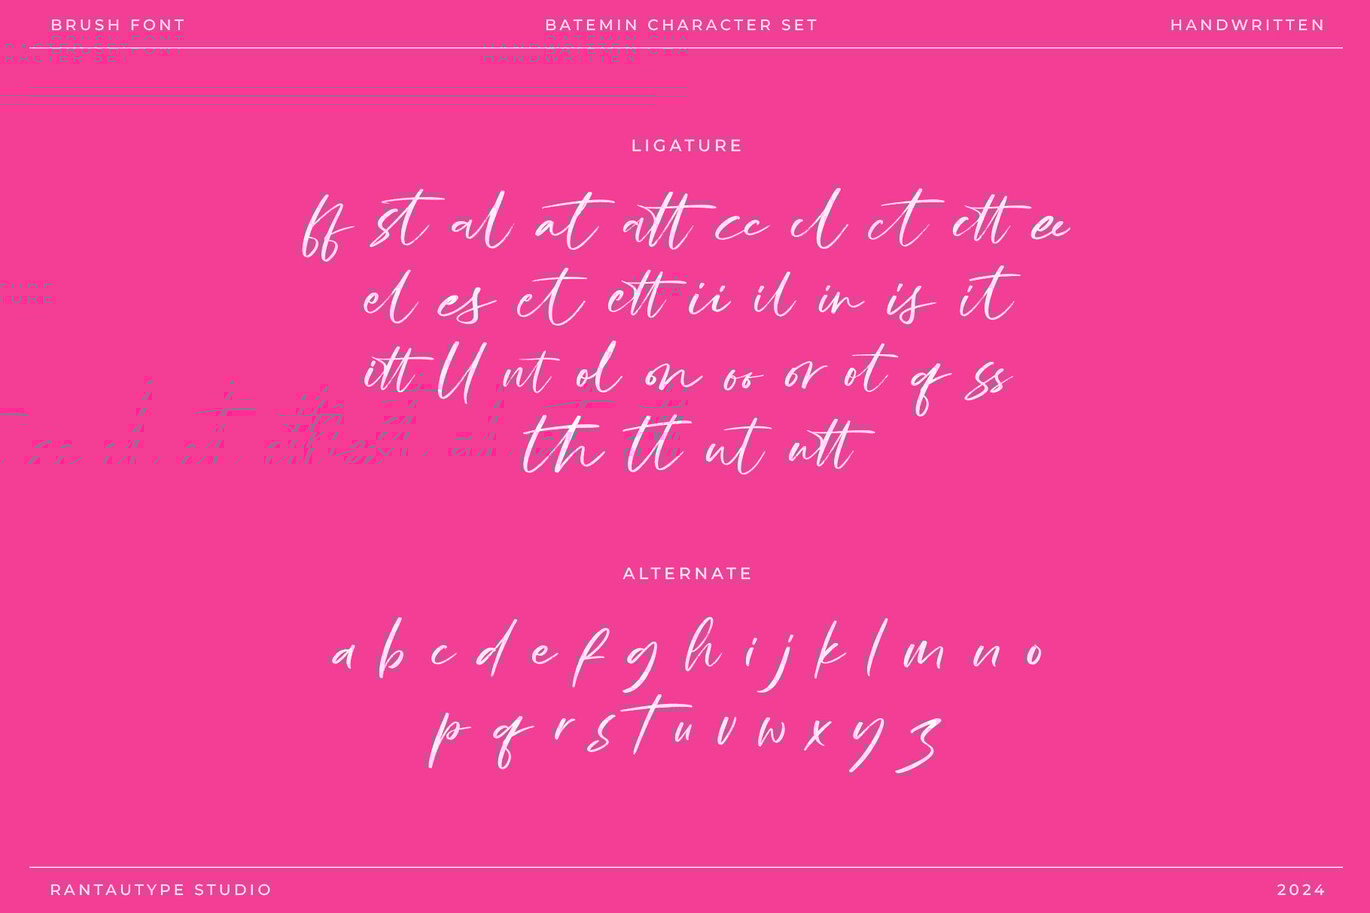 BRUSH FONT
BATEMIN CHARACTER SET
HANDWRITTEN
LIGATURE
ff st al at att cc cl ct ctt ee
el es et ett ii il in is it
itt ll nt ol on oo or ot q ss
th tt ut utt
ALTERNATE
a b c d e f g h i j k l m n o
p q r s t u v w x y z
RANTAUTYPE STUDIO
2024